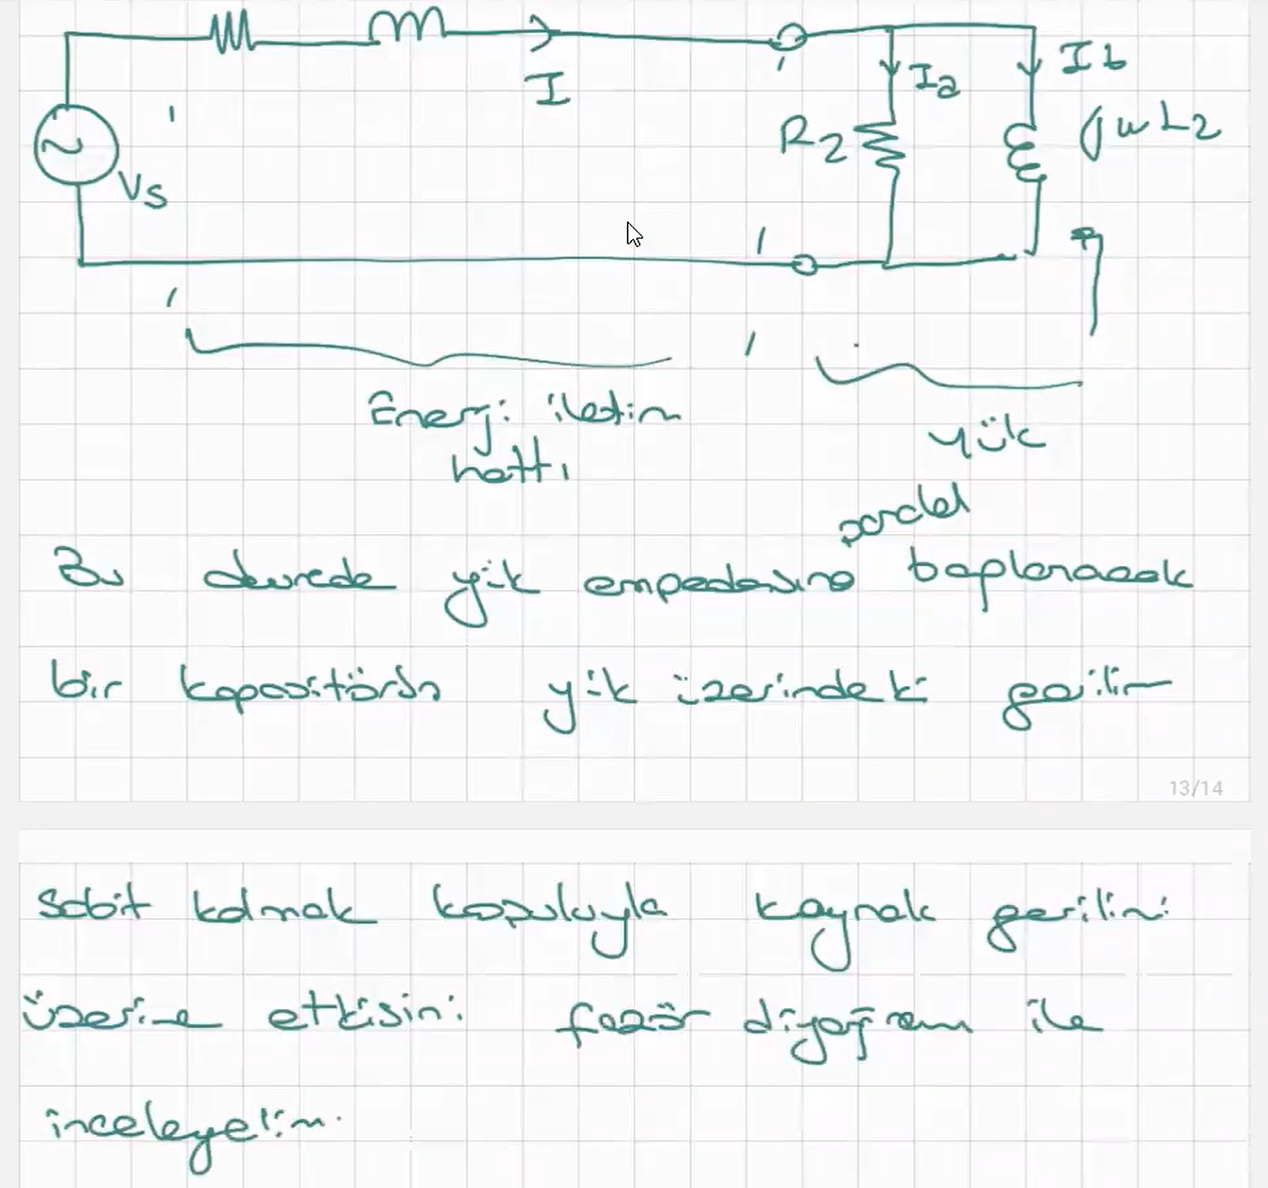 I
I a
I b
R2
jwL2
Vs
Enerji iletim
hattı
yük
paralel
Bu devrede yük empedansına bağlanacak
bir kapasitörün yük üzerindeki gerilim
13/14
sabit kalmak koşuluyla kaynak gerilimi
üzerine etkisini fazör diyagram ile
inceleyelim.